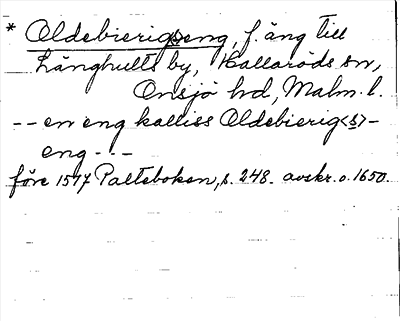 * Oldebierig<s>eng, f. äng till
Långhults by, Kallaröds sn,
Onsjö hd, Malm. l.
-- en eng kalliss Oldebierig<s>-
eng - - -
före 1577 Palteboken, s. 248. avskr. o. 1650.